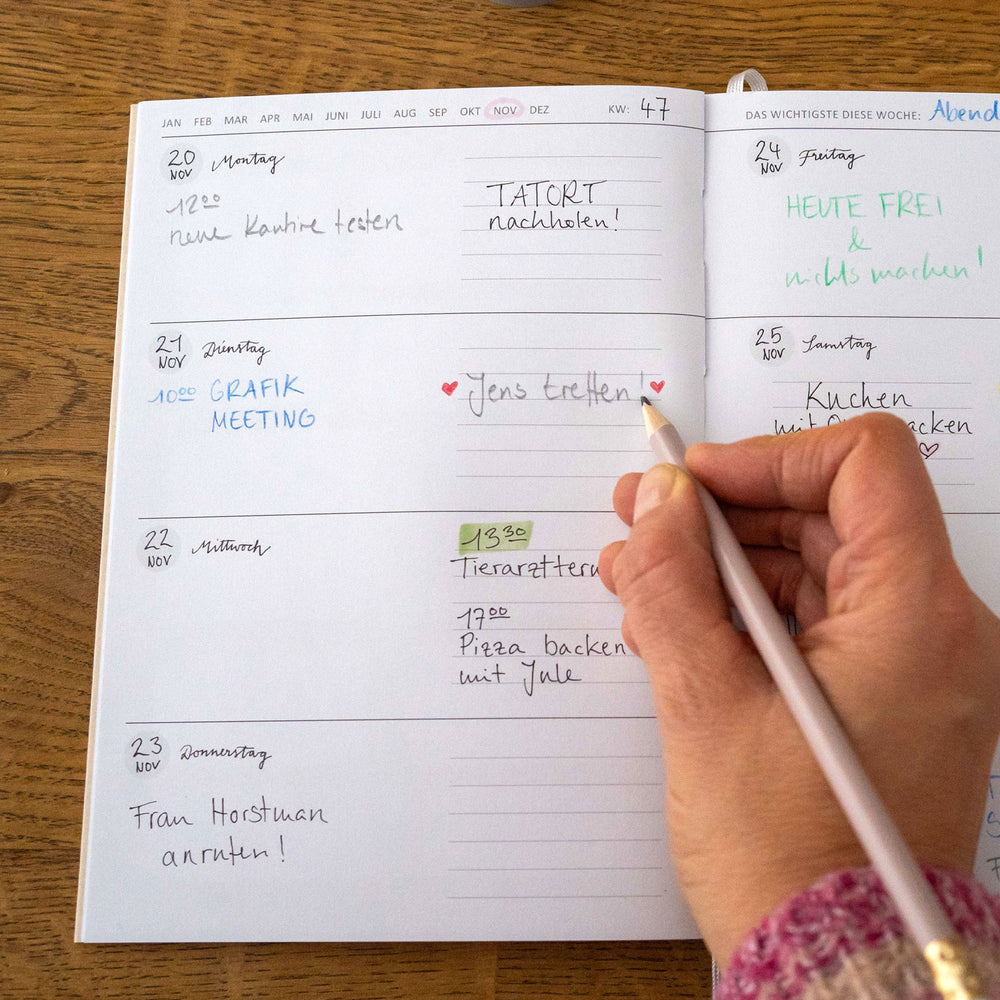 JAN FEB MAR APR MAI JUNI JULI AUG SEP OKT NOV DEZ KW: 47
20 NOV Montag
12⁰⁰
neue Kantine testen
TATORT
nachholen!
21 NOV Dienstag
10⁰⁰ GRAFIK
MEETING
Jens treffen!
22 NOV Mittwoch
13³⁰
17⁰⁰
Pizza backen
mit Jule
23 NOV Donnerstag
Frau Horstman
anrufen!
DAS WICHTIGSTE DIESE WOCHE:
24 NOV Freitag
HEUTE FREI
&
nichts machen!
25 NOV Samstag
Kuchen
mit